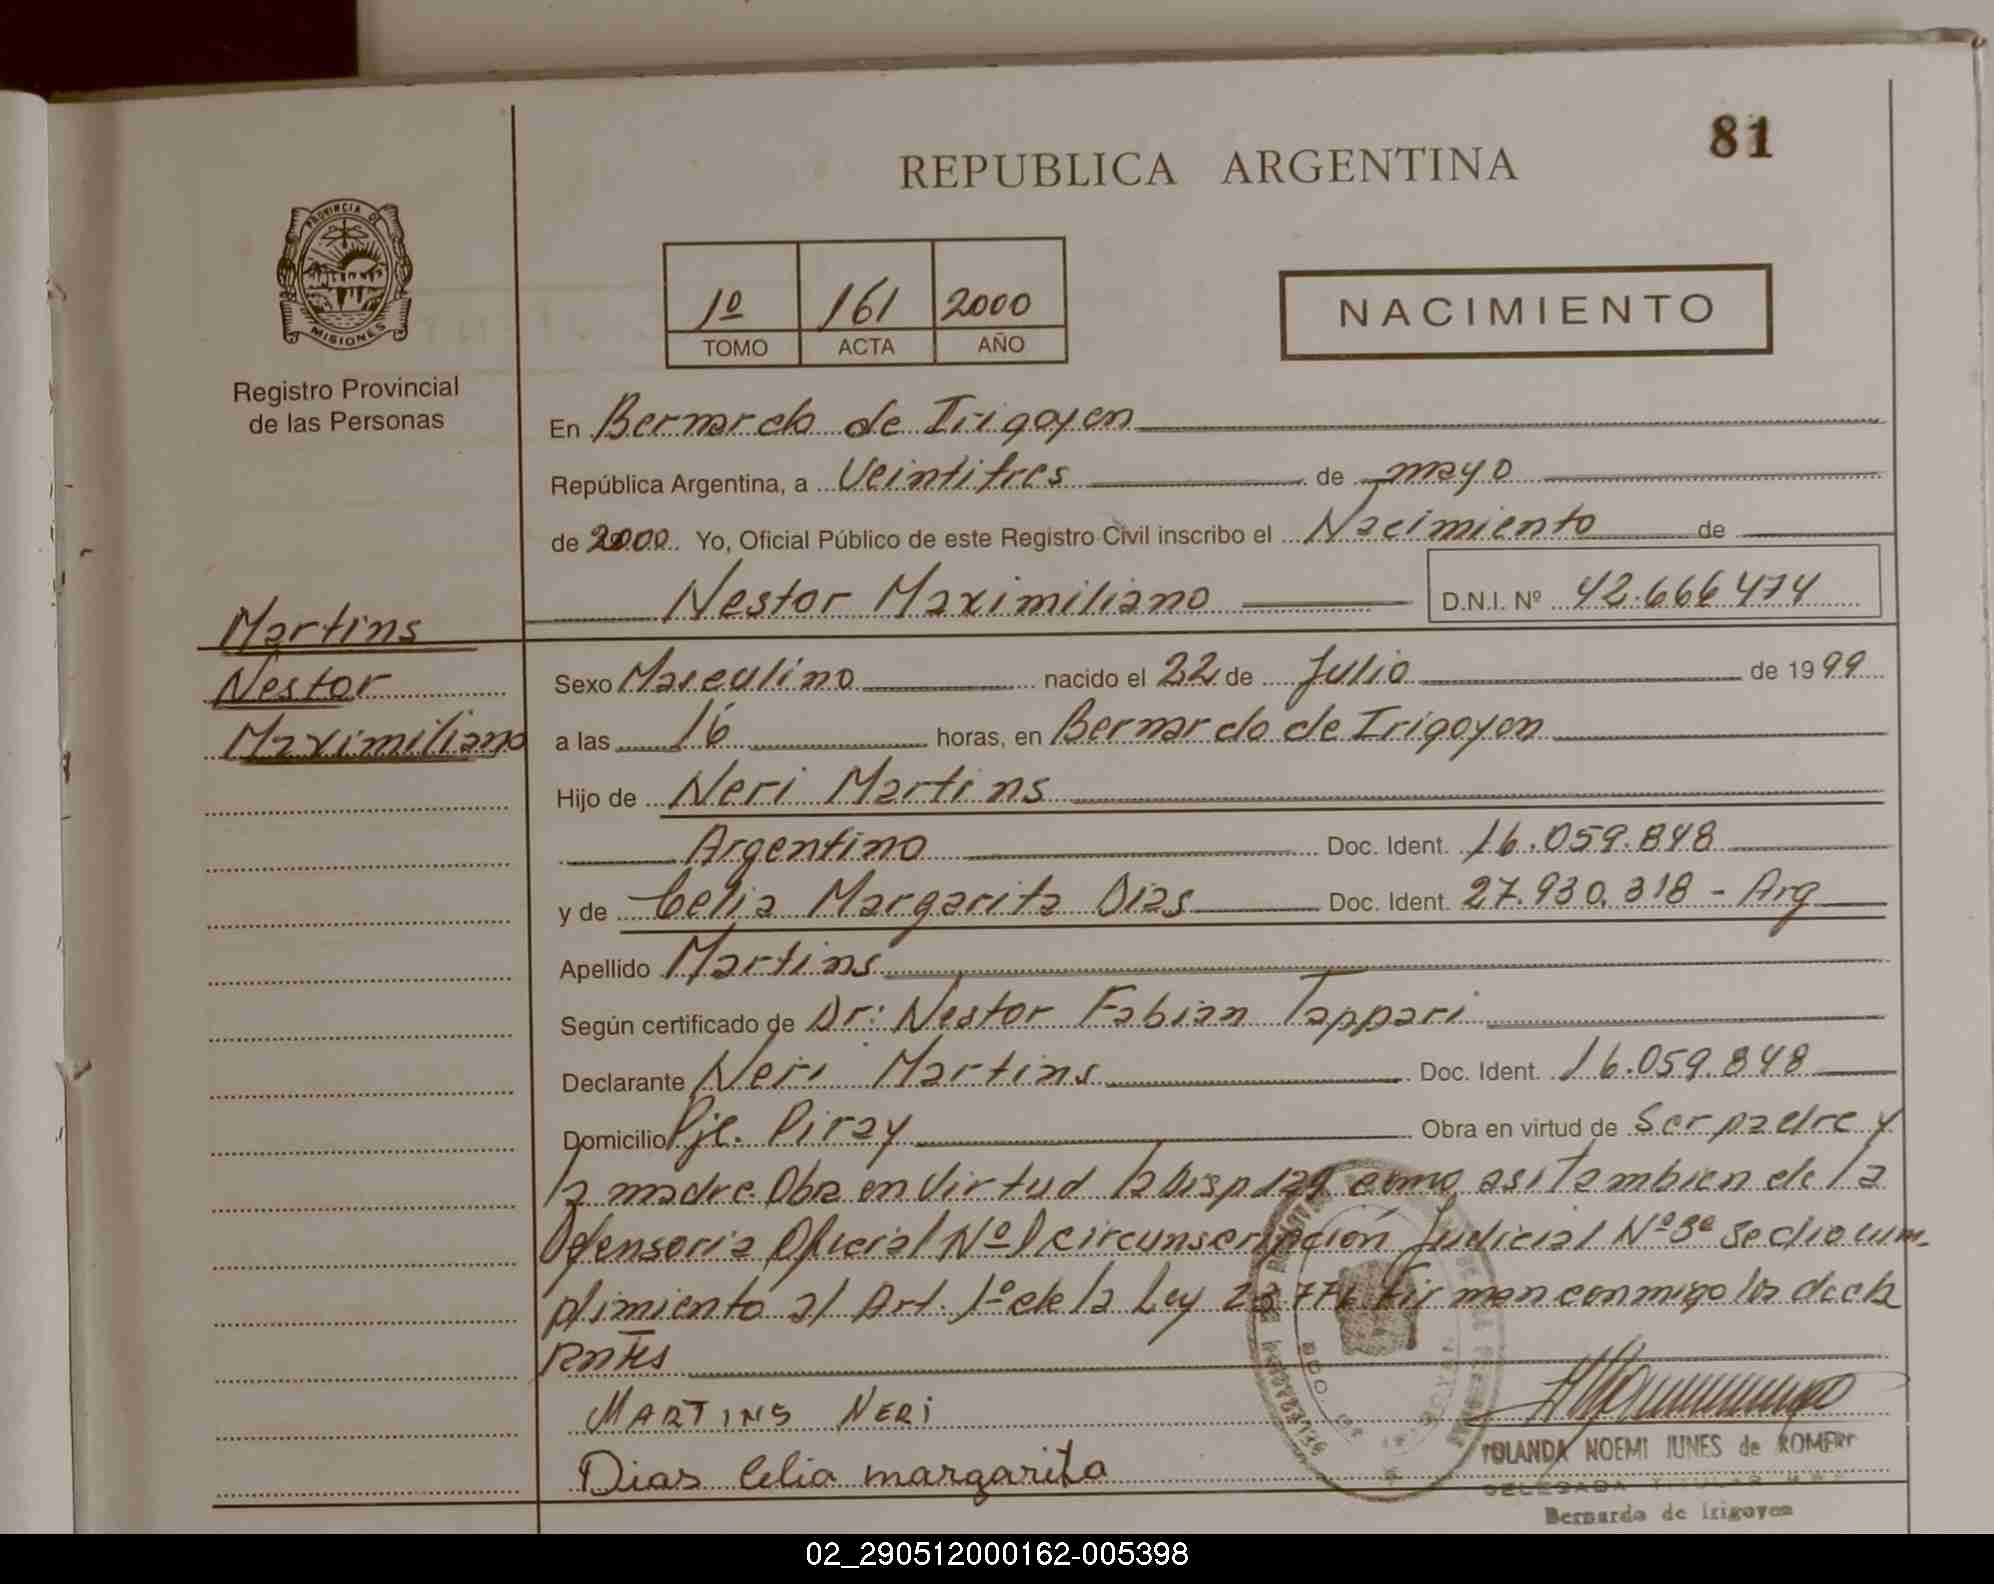 81
REPUBLICA ARGENTINA
PROVINCIA DE
MISIONES
1º 161 2000
TOMO ACTA AÑO
NACIMIENTO
Registro Provincial
de las Personas
En Bernardo de Irigoyen
República Argentina, a Veintitres de mayo
de 2000 Yo, Oficial Público de este Registro Civil inscribo el Nacimiento de
Nestor Maximiliano D.N.I. Nº 42.666474
Martins
Nestor
Maximiliano
Sexo Masculino nacido el 22 de Julio de 1999
a las 16 horas, en Bernardo de Irigoyen
Hijo de Neri Martins
Argentino Doc. Ident. 16.059.848
y de Celia Margarita Dias Doc. Ident. 27.930.318 - Arg
Apellido Martins
Según certificado de Dr: Nestor Fabian Tappari
Declarante Neri Martins Doc. Ident. 16.059.848
Domicilio Pje. Piray Obra en virtud de Ser padre y
la madre. Obra en Virtud la como asi tambien de la
Defensoria Oficial Nº circunscripción Judicial Nº 3º se dio cum-
plimiento al Art. 1º de la Ley 23776 firman conmigo los decla
rantes
MARTINS NERI
Dias Celia margarita
YOLANDA NOEMI IUNES de ROMERO
DELEGADA TITULAR
Bernardo de Irigoyen
02_290512000162-005398